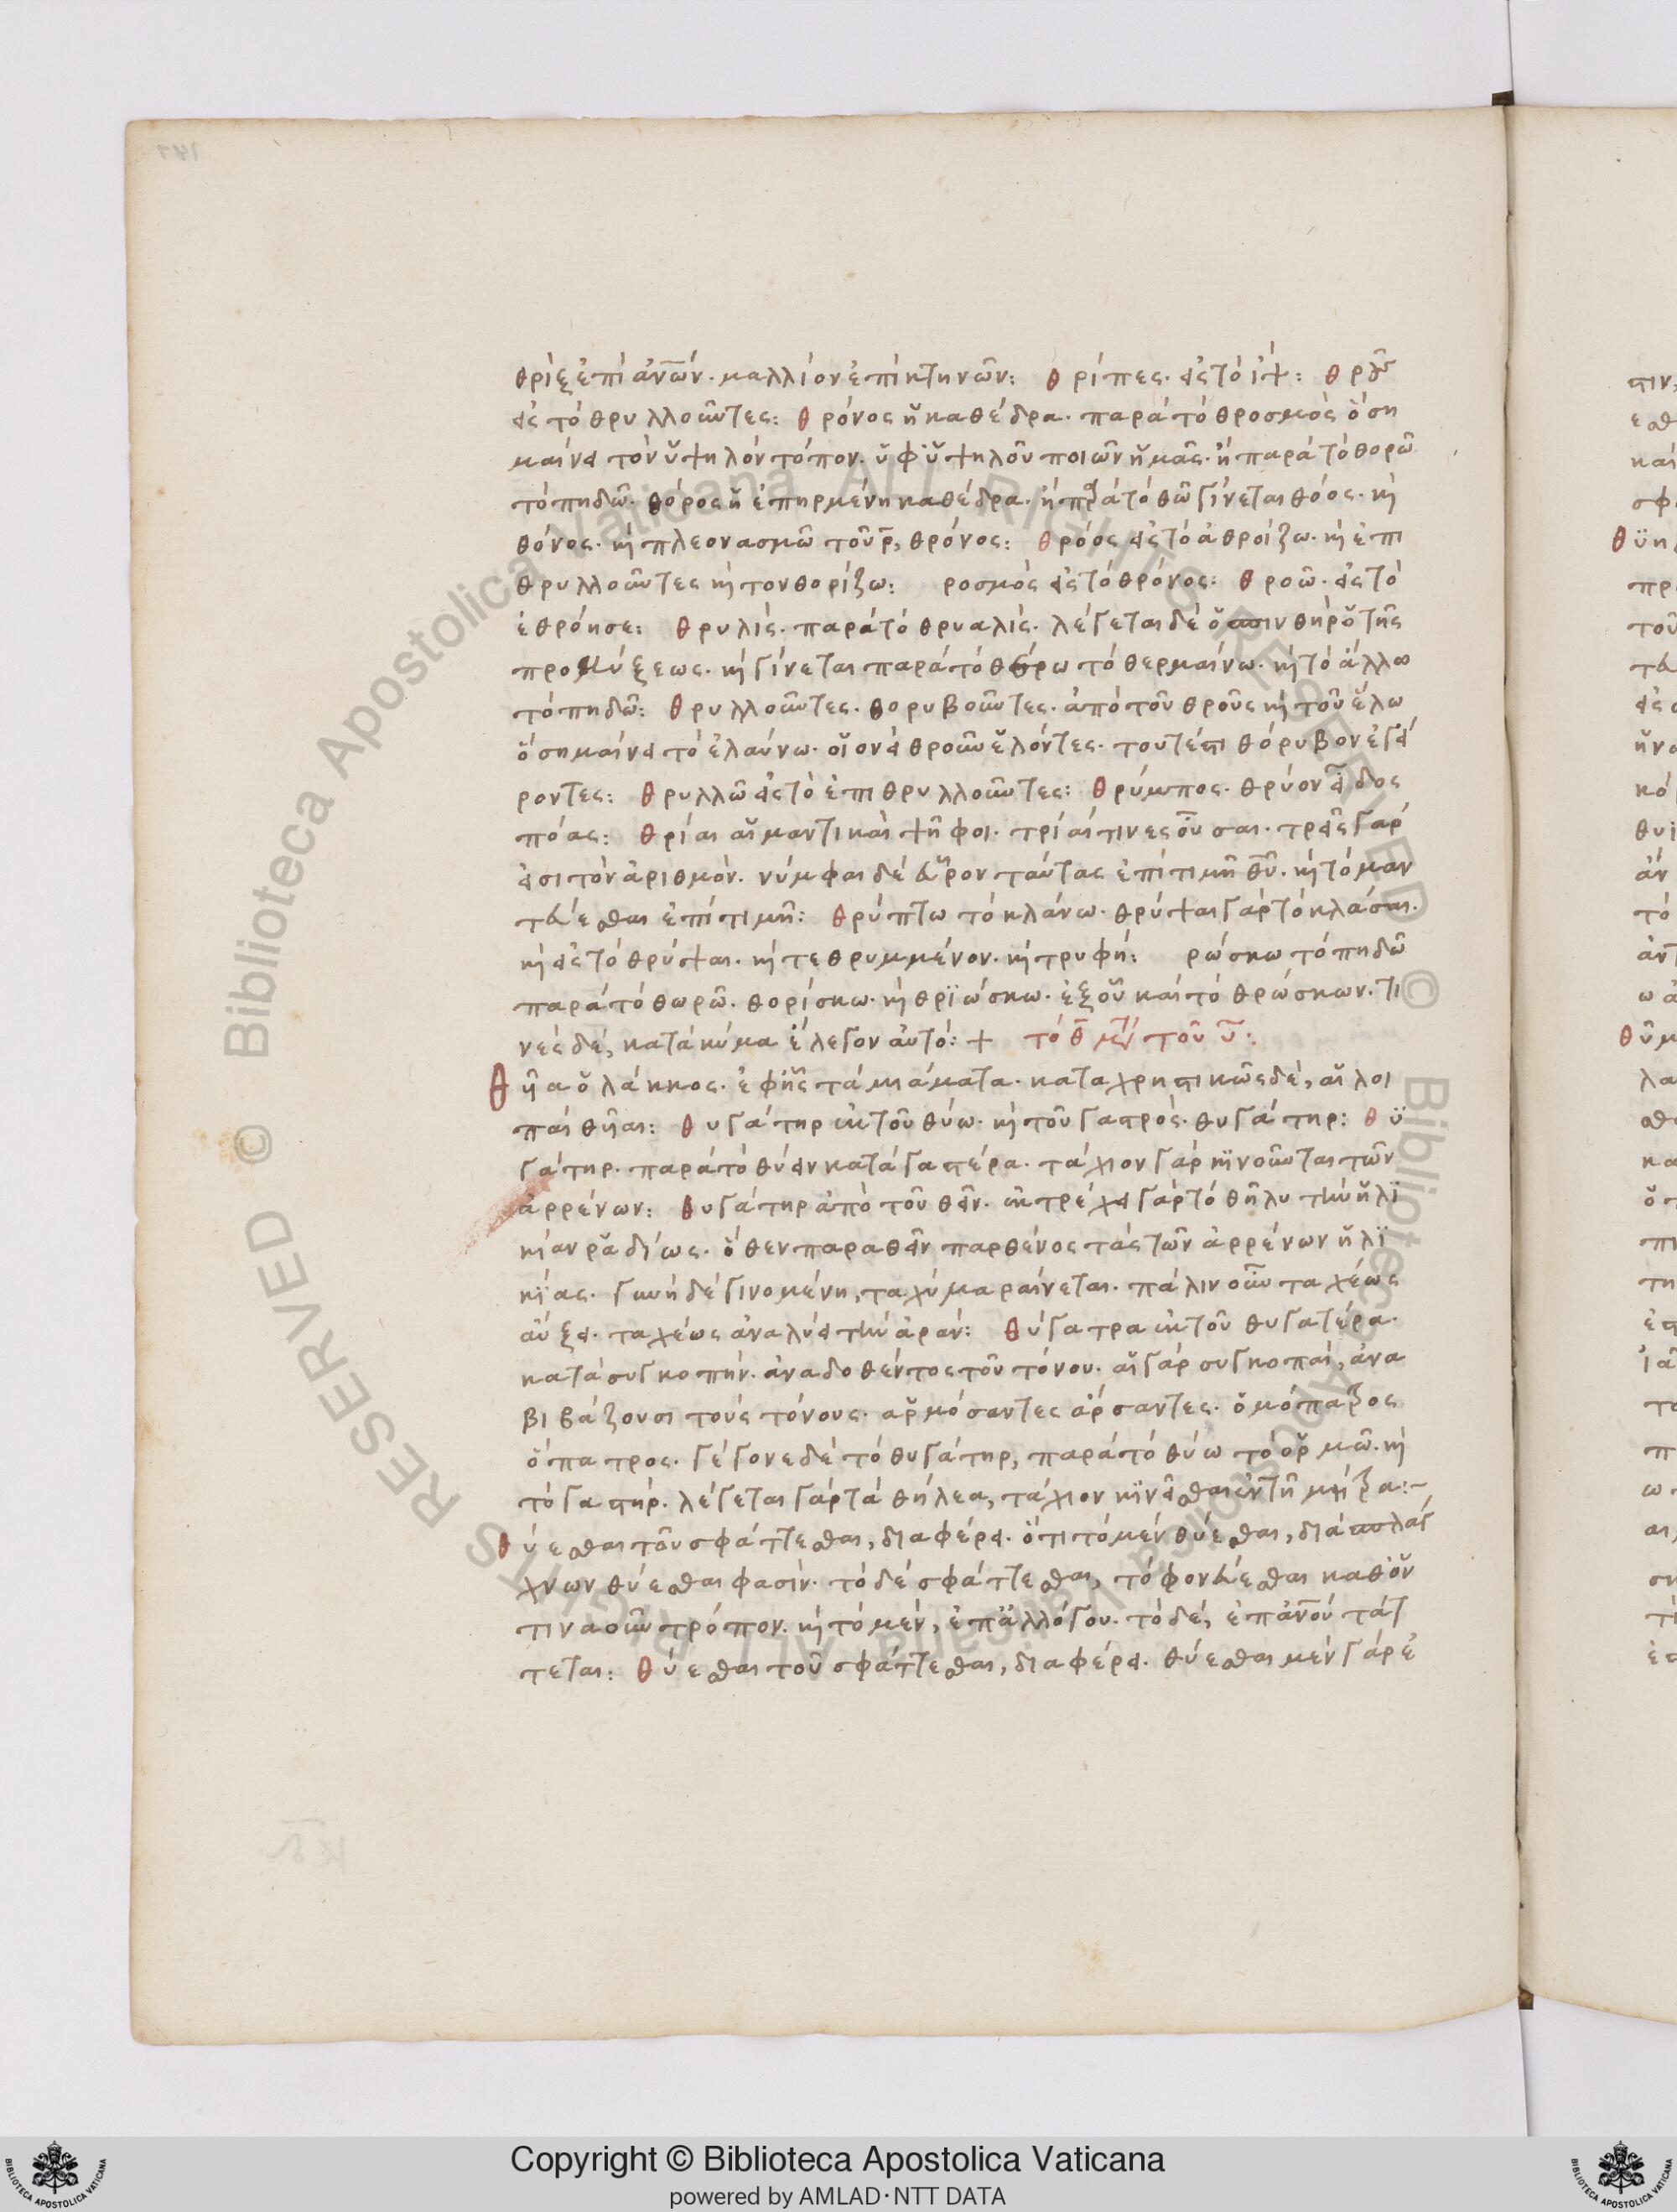 θρὶξ ἐπὶ ἀνῶν· μαλλίον ἐπὶ κτηνῶν: θρίπες· εἰς τὸ ἰψ: θροῦς
εἰς τὸ θρυλλοῦντες: θρόνος ἡ καθέδρα· παρὰ τὸ θροσμὸς ὃ ση
μαίνει τὸν ὑψηλὸν τόπον· ὑφ' ὑψηλοῦ ποιῶν ἡμᾶς· ἢ παρὰ τὸ θορῶ
τὸ πηδῶ· θόρος ἡ ἐπηρμένη καθέδρα· ἢ παρὰ τὸ θῶ γίνεται θόος· καὶ
θόνος· καὶ πλεονασμῶ τοῦ ρ, θρόνος: θρόος εἰς τὸ ἀθροίζω· καὶ ἐπι
θρυλλοῦντες καὶ τονθορίζω: ροσμὸς εἰς τὸ θρόνος: θροῶ· εἰς τὸ
ἐθρόησε: θρυλὶς· παρὰ τὸ θρυαλὶς· λέγεται δὲ
προμύξεως· καὶ γίνεται παρὰ τὸ θέρω τὸ θερμαίνω· καὶ τὸ ἄλλω
τὸ πηδῶ: θρυλλοῦντες· θορυβοῦντες· ἀπὸ τοῦ θροῦς καὶ τοῦ ἕλω
ὃ σημαίνει τὸ ἐλαύνω· οἱονεὶ θροῦν ἑλόντες· τουτέστι θόρυβον ἐγεί
ροντες: θρυλλῶ εἰς τὸ ἐπιθρυλλοῦντες: θρύμπος· θρύον εἶδος
πόας: θρίαι αἱ μαντικαὶ ψῆφοι· τρίαί τινες οὖσαι· τρεῖς γάρ
εἰσι τὸν ἀριθμόν· νύμφαι δὲ εὗρον ταύτας ἐπὶ τιμῇ θυ· καὶ τὸ μαν
τεύεσθαι ἐπὶ τιμῇ: θρύπτω τὸ κλάνω· θρύψαι γὰρ τὸ κλάσαι·
καὶ εἰς τὸ θρύψαι· καὶ τεθρυμμένον· καὶ τρυφή: ρώσκω τὸ πηδῶ
παρὰ τὸ θωρῶ· θορίσκω· καὶ θρϊώσκω· ἐξ οὗ καὶ τὸ θρώσκων· τι
νὲς δέ, κατὰ κύμα ἔλεγον αὐτό: + τὸ θ μετὰ τοῦ υ:
Θυῖα ὁ λάκκος· ἐφ' ἧς τὰ μιάματα· καταχρηστικῶς δὲ, αἱ λοι
παὶ θυῖαι: θυγάτηρ ἐκ τοῦ θύω· καὶ τοῦ γαστρὸς· θυγάτηρ: θυ
γάτηρ· παρὰ τὸ θύειν κατὰ γαστέρα· τάχιον γὰρ κινοῦνται τῶν
ἀρρένων: θυγάτηρ ἀπὸ τοῦ θεῖν· ἐκτρέχει γὰρ τὸ θῆλυ τὴν ἡλϊ
κίαν ῥαδίως· ὅθεν παραθεῖν παρθένος τὰς τῶν ἀρρένων ἡλϊ
κίας· γυνὴ δὲ γινομένη, ταχὺ μαραίνεται· πάλιν οὖν ταχέως
αὔξει· ταχέως ἀναλύει τὴν ἀράν: θύγατρα ἐκ τοῦ θυγατέρα·
κατὰ συγκοπήν· ἀναδοθέντος τοῦ τόνου· αἱ γὰρ συγκοπαὶ, ἀνα
βιβάζουσι τοὺς τόνους· ἁρμόσαντες ἄρσαντες· ὁμόπατρος
ὄπατρος· γέγονε δὲ τὸ θυγάτηρ, παρὰ τὸ θύω τὸ ὁρμῶ· καὶ
τὸ γαστήρ· λέγεται γὰρ τὰ θήλεα, τάχιον κϊνεῖσθαι ἐν τῇ μήτρα:~
θύεσθαι τοῦ σφάττεσθαι, διαφέρει· ὅτι τὸ μὲν θύεσθαι, διὰ σπλάγ
χνων θύεσθαι φασὶν· τὸ δὲ σφάττεσθαι, τὸ φονεύεσθαι καθ' ὃν
τινα οὖν τρόπον· καὶ τὸ μὲν, ἐπ' ἀλλόγου· τὸ δέ, ἐπ' ἀνοῦ τάτ
τεται: θύεσθαι τοῦ σφάττεσθαι, διαφέρει· θύεσθαι μὲν γὰρ ἐ
Copyright © Biblioteca Apostolica Vaticana
powered by AMLAD·NTT DATA